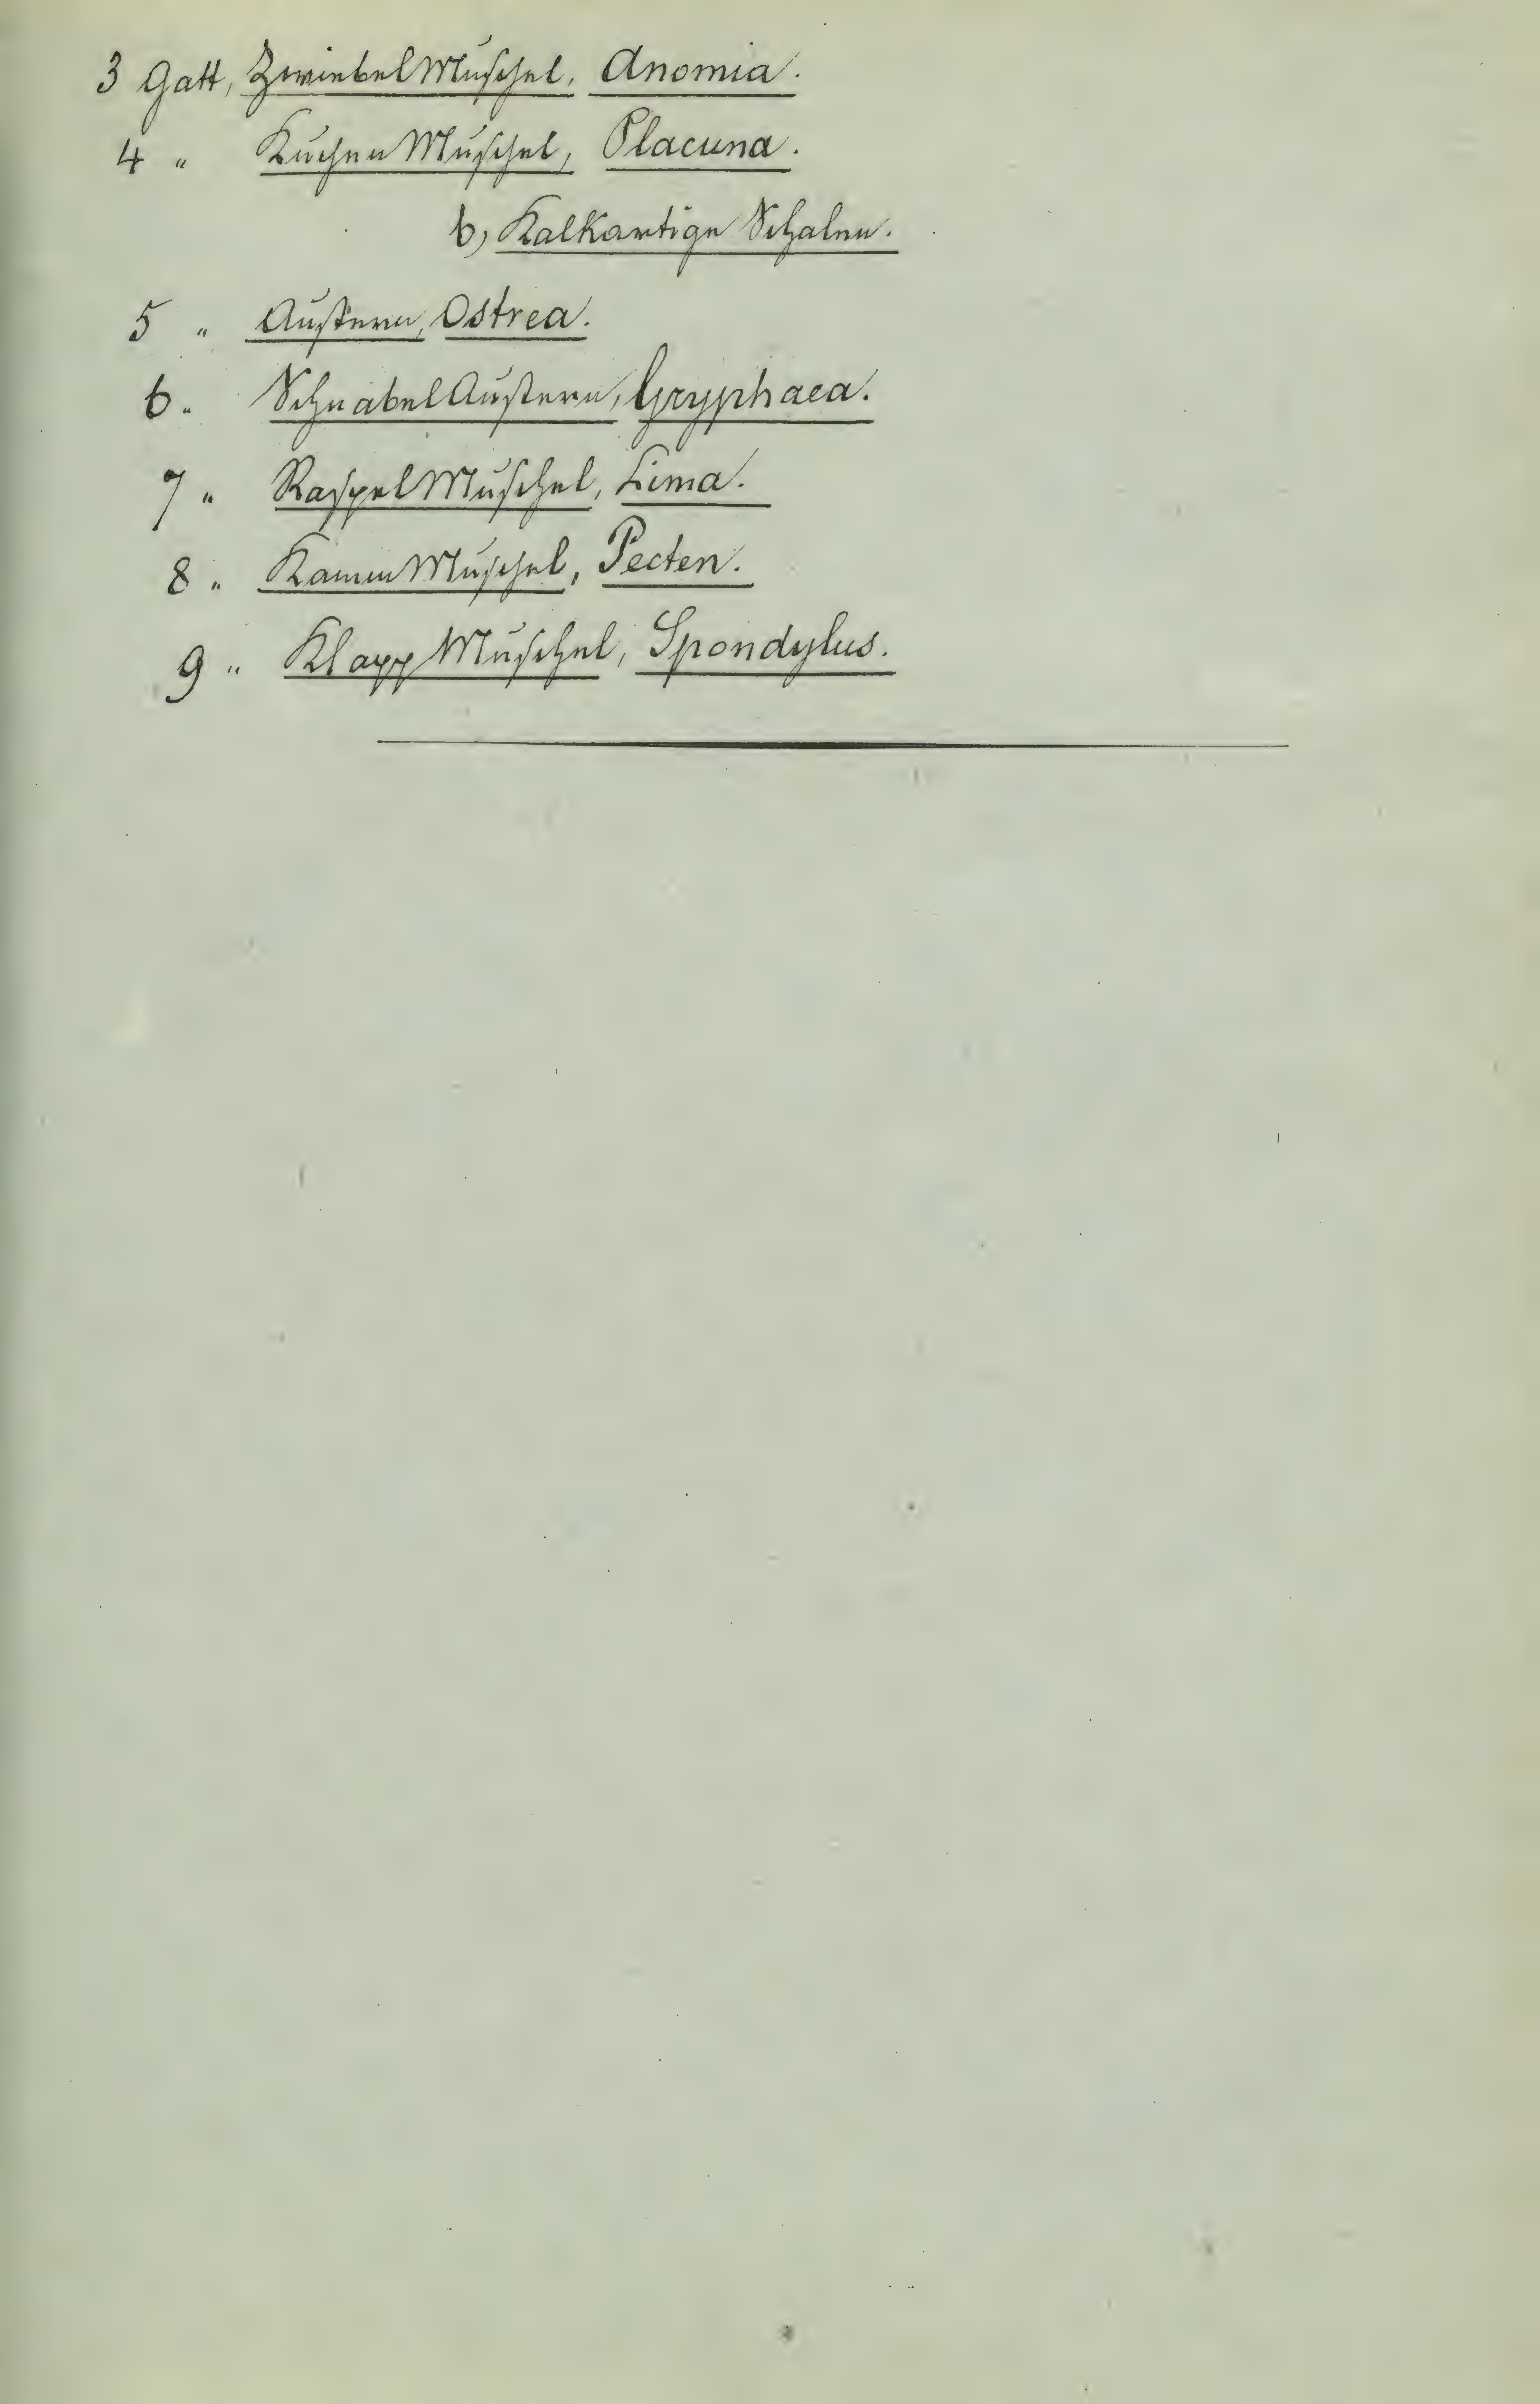 3 Gatt, ZwiebelMuschel, Anomia.
4 " KuchenMuschel, Placuna.
b, Kalkartige Schalen.
5 " Austern, Ostrea.
6 " SchnabelAustern, Gryphaea.
7 " RaspelMuschel, Lima.
8 " KammMuschel, Pecten.
9 " KlappMuschel, Spondylus.